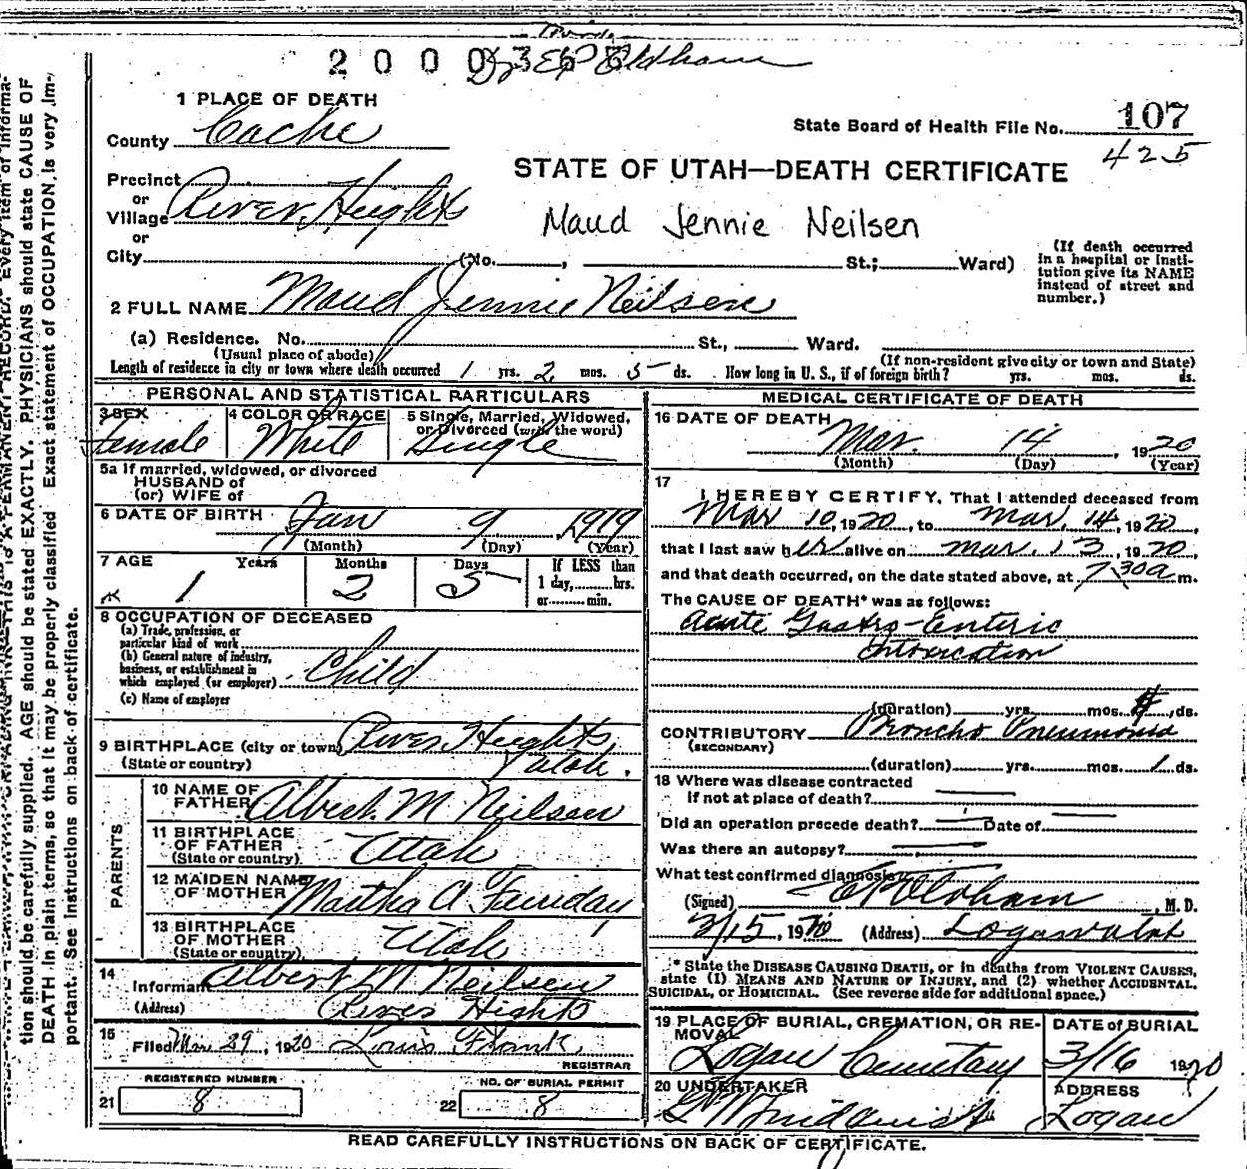 200036 E P Oldham
1 PLACE OF DEATH
County Cache
State Board of Health File No. 107
425
STATE OF UTAH—DEATH CERTIFICATE
Precinct
or
Village River Heights
or
City (No. , St.; Ward)
Maud Jennie Neilsen
(If death occurred
in a hospital or insti-
tution give its NAME
instead of street and
number.)
2 FULL NAME Maud Jennie Neilsen
(a) Residence. No. St., Ward.
(Usual place of abode) (If non-resident give city or town and State)
Length of residence in city or town where death occurred 1 yrs. 2 mos. 5 ds. How long in U. S., if of foreign birth? yrs. mos. ds.
PERSONAL AND STATISTICAL PARTICULARS
3 SEX Female
4 COLOR OR RACE White
5 Single, Married, Widowed,
or Divorced (write the word)
Single
5a If married, widowed, or divorced
HUSBAND of
(or) WIFE of
6 DATE OF BIRTH Jan 9, 1919
(Month) (Day) (Year)
7 AGE Years Months Days If LESS than
1 day, hrs.
or min.
1 2 5
8 OCCUPATION OF DECEASED
(a) Trade, profession, or
particular kind of work
(b) General nature of industry,
business, or establishment in
which employed (or employer) Child
(c) Name of employer
9 BIRTHPLACE (city or town) River Heights
(State or country) Utah.
PARENTS
10 NAME OF
FATHER Albert M Neilsen
11 BIRTHPLACE
OF FATHER
(State or country) Utah
12 MAIDEN NAME
OF MOTHER Martha A
13 BIRTHPLACE
OF MOTHER
(State or country) Utah
14
Informant Albert M Neilsen
(Address) River Hights
15
Filed Mar 29, 1920 Louis Frank
REGISTRAR
REGISTERED NUMBER
21 8
NO. OF BURIAL PERMIT
22 8
MEDICAL CERTIFICATE OF DEATH
16 DATE OF DEATH
Mar. 14, 1920
(Month) (Day) (Year)
17
I HEREBY CERTIFY, That I attended deceased from
Mar 10, 1920, to Mar. 14, 1920,
that I last saw her alive on Mar. 13, 1920,
and that death occurred, on the date stated above, at 7:30a m.
The CAUSE OF DEATH* was as follows:
Acute Gastro-Enteric
Intoxication
(duration) yrs. mos. 4 ds.
CONTRIBUTORY Broncho Pneumonia
(SECONDARY)
(duration) yrs. mos. 1 ds.
18 Where was disease contracted
if not at place of death?
Did an operation precede death? Date of
Was there an autopsy?
What test confirmed diagnosis?
(Signed) E P Oldham, M. D.
3/15, 1920 (Address) Logan Utah
* State the DISEASE CAUSING DEATH, or in deaths from VIOLENT CAUSES,
state (1) MEANS AND NATURE OF INJURY, and (2) whether ACCIDENTAL,
SUICIDAL, or HOMICIDAL. (See reverse side for additional space.)
19 PLACE OF BURIAL, CREMATION, OR RE-
MOVAL
Logan Cemetary
DATE of BURIAL
3/16 1920
20 UNDERTAKER
ADDRESS
Logan
READ CAREFULLY INSTRUCTIONS ON BACK OF CERTIFICATE.
tion should be carefully supplied. AGE should be stated EXACTLY. PHYSICIANS should state CAUSE OF
DEATH in plain terms, so that it may be properly classified. Exact statement of OCCUPATION is very im-
portant. See instructions on back of certificate.